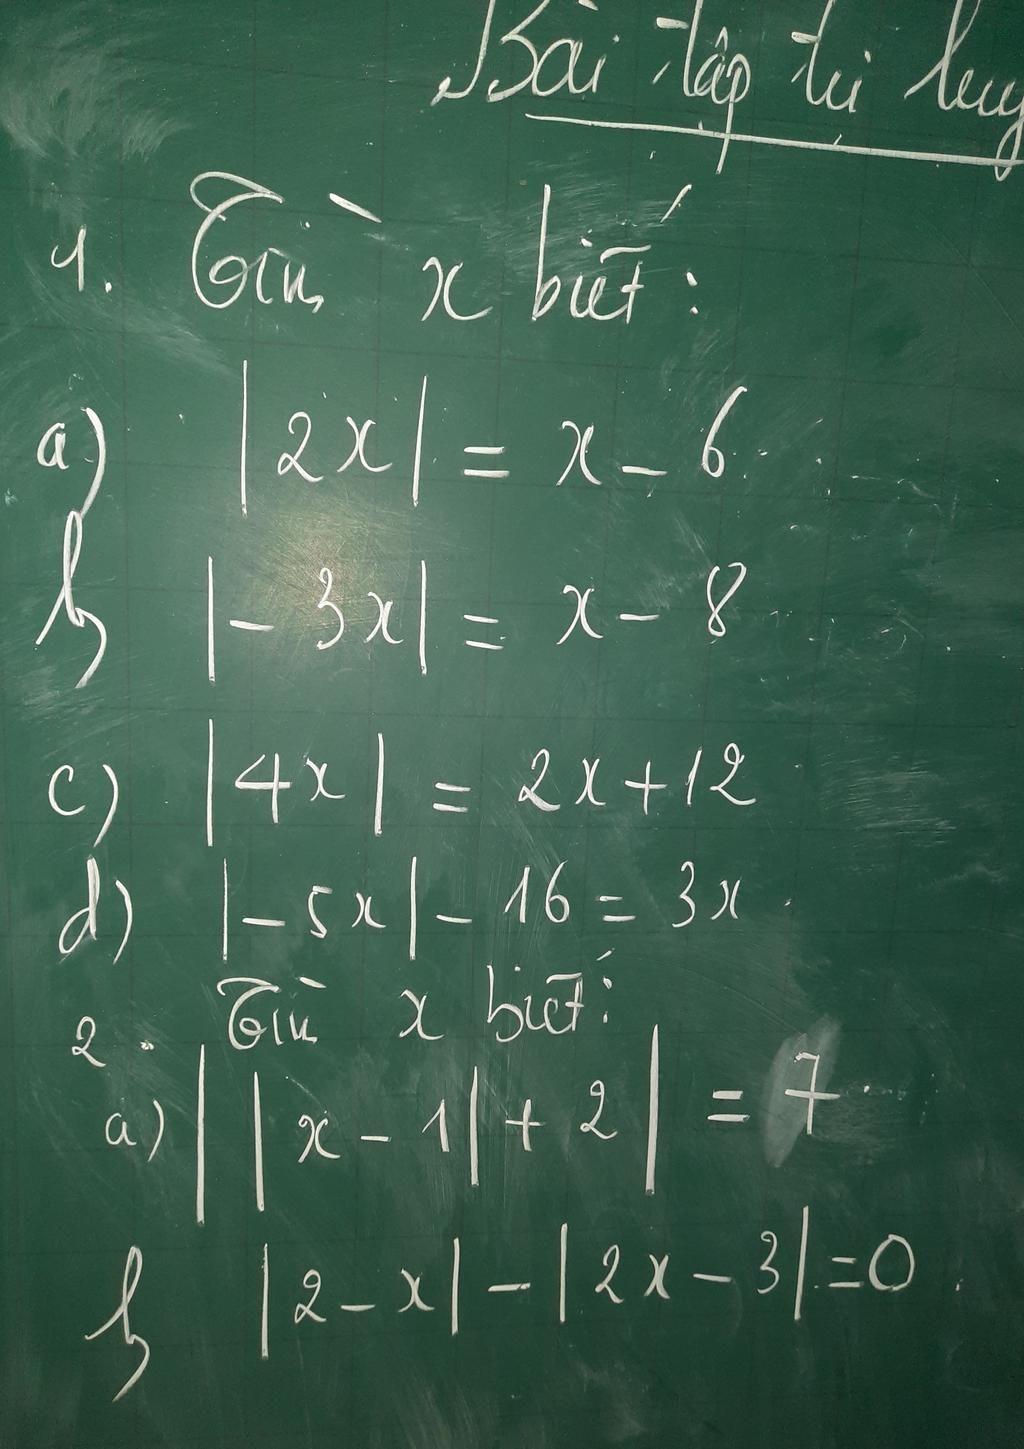 Bài tập tự luy
1. Tìm x biết:
a) |2x| = x - 6
b) |-3x| = x - 8
c) |4x| = 2x + 12
d) |-5x| - 16 = 3x
2. Tìm x biết:
a) ||x - 1| + 2| = 7
b) |2 - x| - |2x - 3| = 0